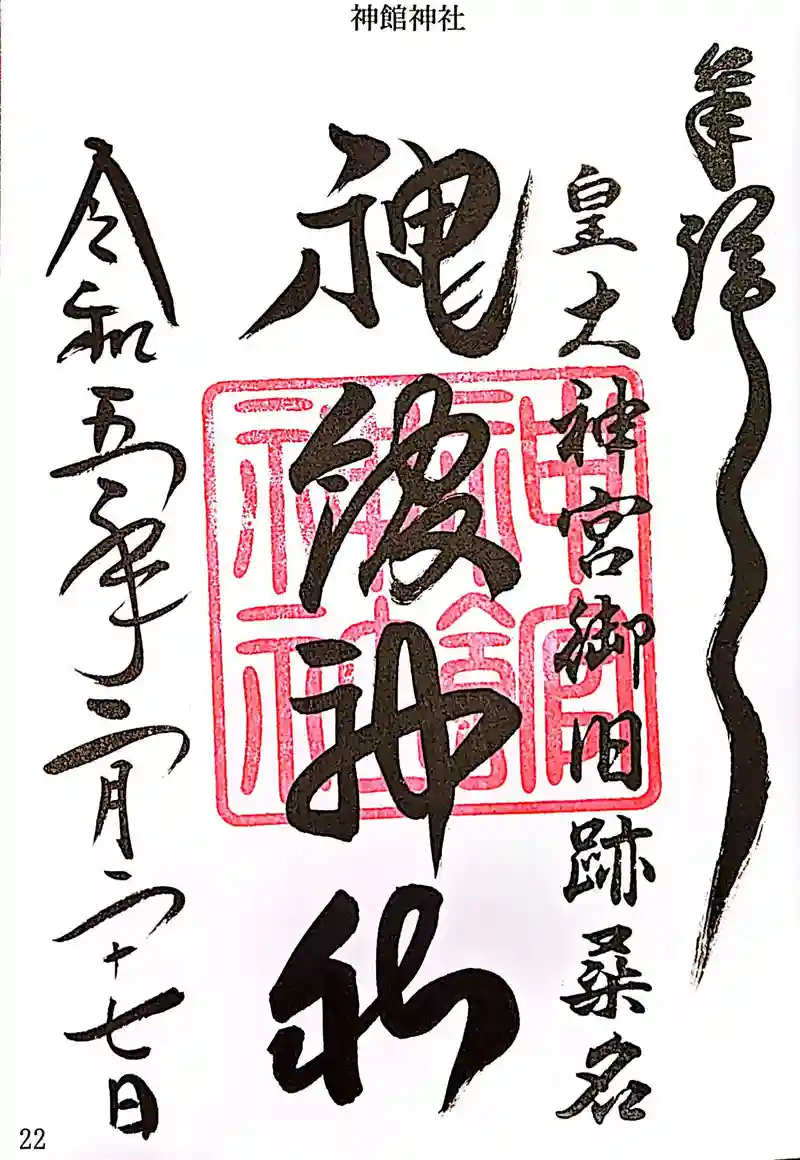 神館神社
奉拝
皇大神宮御旧跡桑名
神館神社
神館
神社
令和五年二月二十七日
22